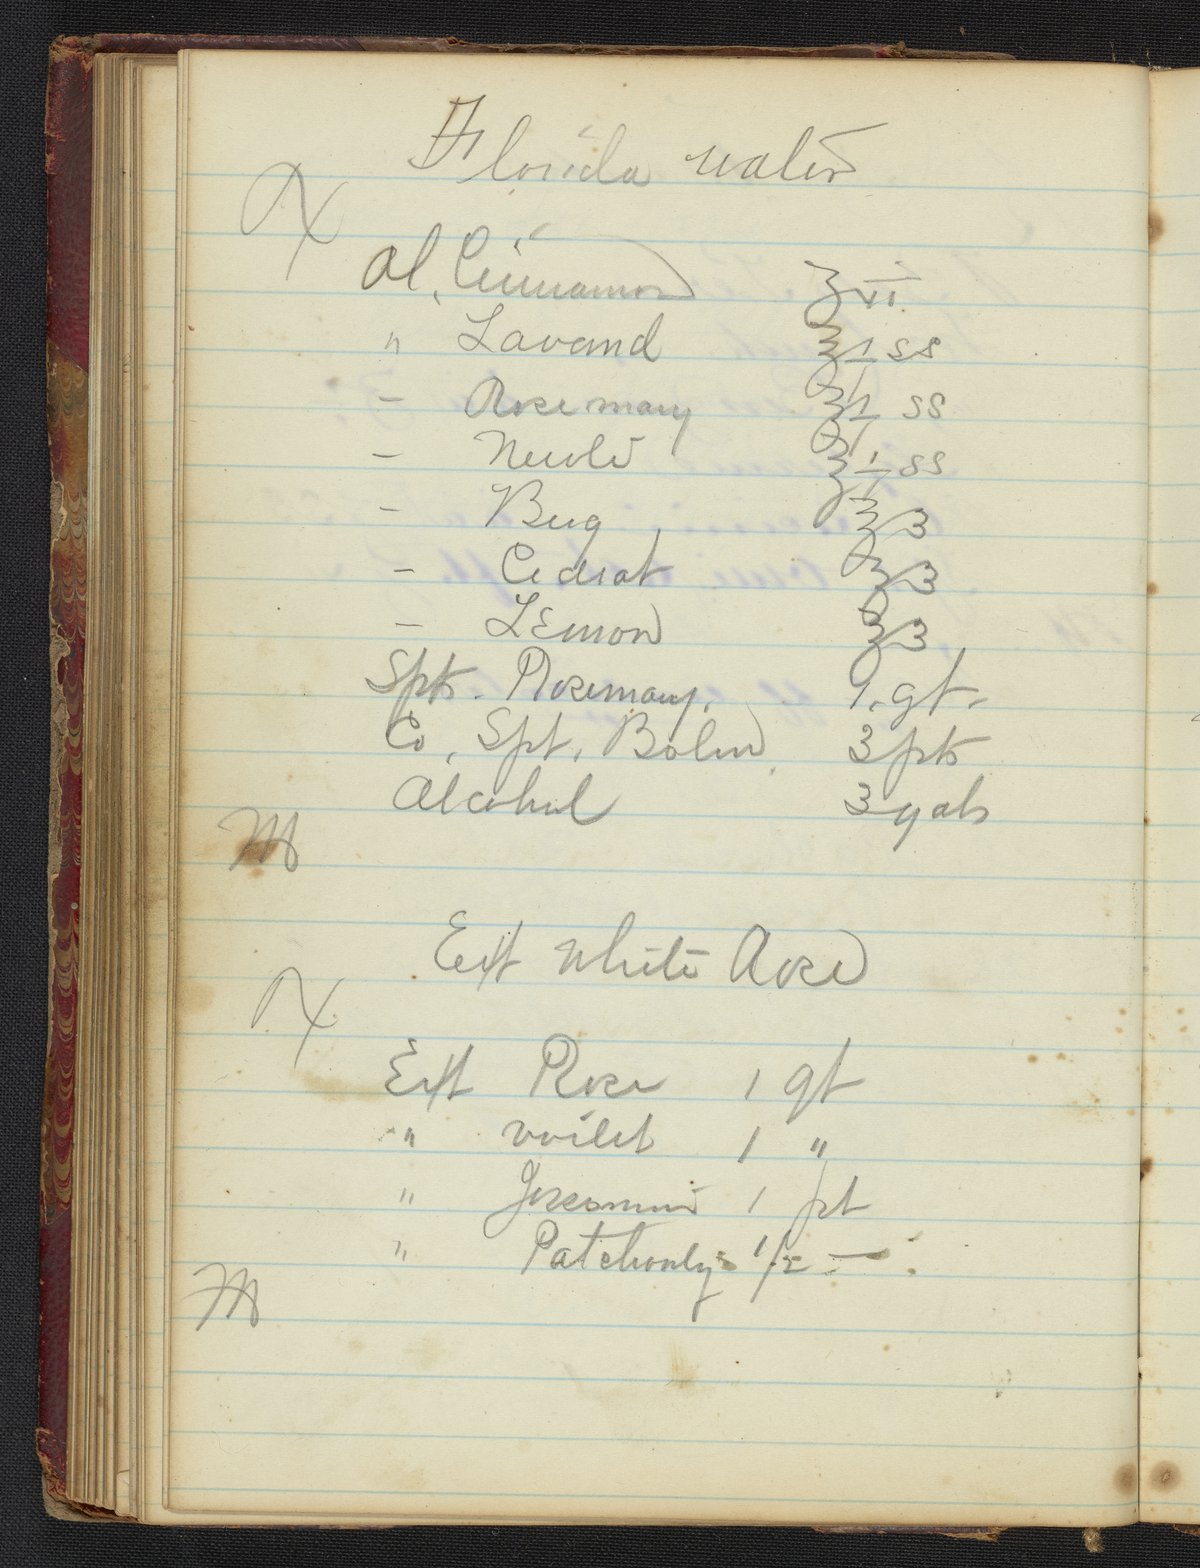 Florida water
Ol. Cinnamon ʒvi
" Lavand ℥i ss
– Rosemary ℥i ss
– Neroli ℥i ss
– Berg ℥3
– Cedrat ℥3
– Lemon ℥3
Spts. Rosemary. 1. qt.
Co. Spt. Balm 3 pts
Alcohol 3 gals
M
Ext White Rose
Ext Rose 1 qt
" Voilet 1 "
" Jessmin 1 pt
" Patchouly 1/2 –
M